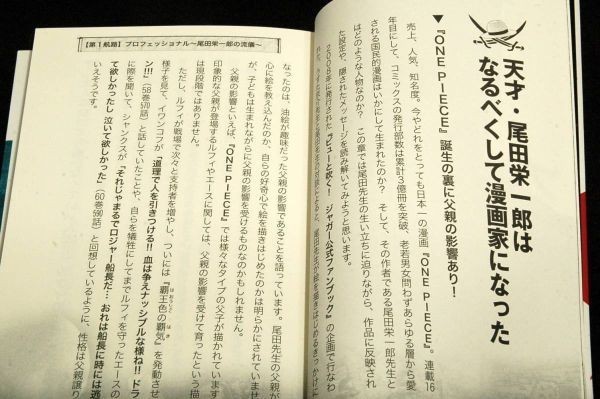 天才・尾田栄一郎は
なるべくして漫画家になった
▼『ONE PIECE』誕生の裏に父親の影響あり!
売上、人気、知名度。今やどれをとっても日本一の漫画『ONE PIECE』。連載16
年目にして、コミックスの発行部数は累計3億冊を突破、老若男女問わずあらゆる層から愛
される国民的漫画はいかにして生まれたのか? そして、その作者である尾田栄一郎先生と
はどのような人物なのか? この章では尾田先生の生い立ちに迫りながら、作品に反映され
た設定や、隠されたメッセージを読み解いてみようと思います。
2008年に発行された『ピューと吹く! ジャガー公式ファンブック』の企画で行なわ
尾田先生が絵を描きはじめるきっかけに
【第1航路】プロフェッショナル〜尾田栄一郎の流儀〜
なったのは、油絵が趣味だった父親の影響であることを語っています。尾田先生の父親が
心に絵を教え込んだのか、自らの好奇心で絵を描きはじめたのかは明らかにされていませ
が、子どもは生まれながらに父親の影響を受けるものなのかもしれません。
父親の影響といえば、『ONE PIECE』では様々なタイプの父子が描かれています
印象的な父親が登場するルフィやエースに関しては、父親の影響を受けて育ったという描
は現段階ではありません。
ただし、ルフィが戦場で次々と支持者を増やし、ついには『覇王色の覇気』を発動させ
様子を見て、イワンコフが「道理で人を引きつける!! 血は争えナッシブルな様ね!! ドラ
ン!!!」(58巻570話)と話していたことや、自らを犠牲にしてまでルフィを守ったエースの
に際を聞いて、シャンクスが「それじゃまるでロジャー船長だ… おれは船長に時には逃
て欲しかったし 泣いて欲しかった」(60巻590話)と回想しているように、性格は父親譲り
いえそうです。